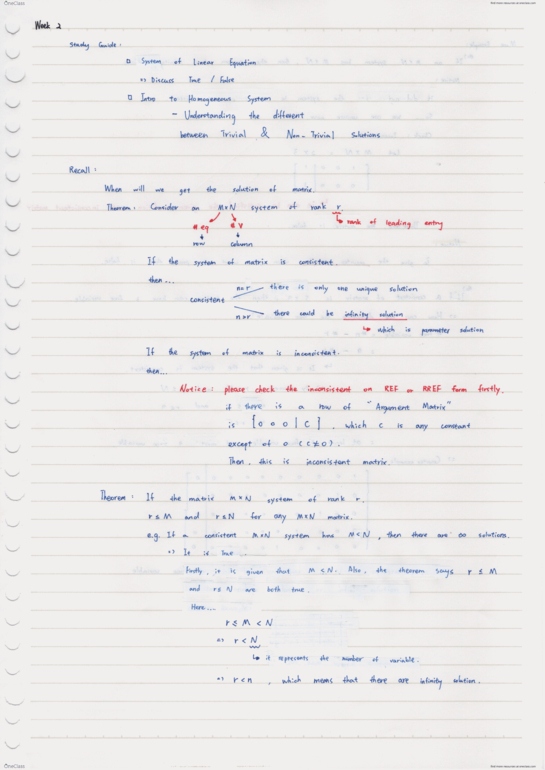 OneClass
Week 2
Study Guide:
□ System of Linear Equation
=> Discuss True / False
□ Intro to Homogeneous System
- Understanding the different
between Trivial & Non-Trivial Solutions
Recall:
When will we get the solution of matrix.
Theorem: Consider an M×N system of rank r.
# eq # V ↳ rank of leading entry
row column
If the system of matrix is consistent.
then...
n=r there is only one unique solution
consistent
n>r there could be infinity solution
↳ which is parameter solution
If the system of matrix is inconsistent.
then...
Notice: please check the inconsistent on REF or RREF form firstly.
if there is a row of "Argument Matrix"
is [0 0 0 | C], which C is any constant
except of 0 (C≠0).
Then, this is inconsistent matrix.
Theorem: If the matrix M×N system of rank r.
r≤M and r≤N for any M×N matrix.
e.g. If a consistent M×N system has M<N, then there are ∞ solutions.
=> It is true...
Firstly, it is given that M<N. Also, the theorem says r≤M
and r≤N are both true.
Here...
r≤M<N
=> r<N
↳ it represents the number of variable.
=> r<n, which means that there are infinity solution.
OneClass